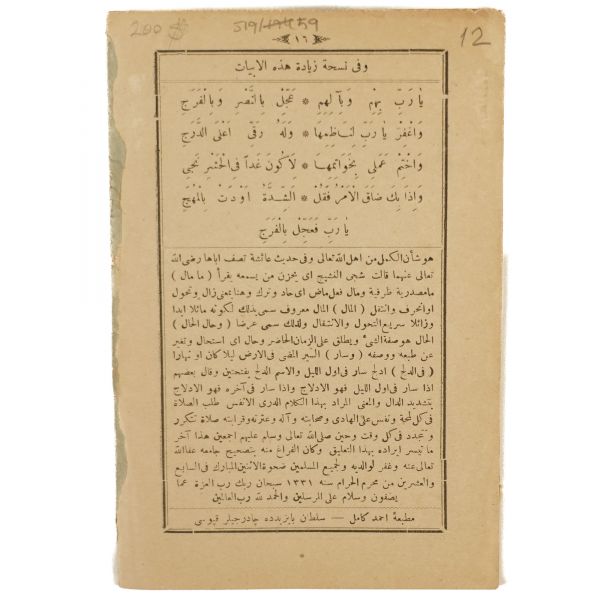 200 519/194 59
12
١٦
وفى نسخة زيادة هذه الابيات
يَا رَبِّ بِهِمْ وَبِآلِهِمِ * عَجِّلْ بِالنَّصْرِ وَبِالْفَرَجِ
وَاغْفِرْ يَا رَبِّ لِنَاظِمِهَا * وَلَهُ رَقِّى اَعْلَى الدَّرَجِ
وَاخْتِمْ عَمَلِى بِخَوَاتِمِهَا * لِاَكُونَ غَداً فى الْحَشْرِ نَجِى
وَاِذَا بِكَ ضَاقَ الْاَمْرُ فَقُلْ * اَلشِّدَّةُ اَوْدَتْ بِالْمُهَجِ
يَا رَبِّ فَعَجِّلْ بِالْفَرَجِ
هو شأن الكمل من اهل الله تعالى وفى حديث عائشة تصف اباها رضى الله
تعالى عنهما قالت شجى النشيج اى يحزن من يسمعه يقرأ ( ما مال )
مامصدرية ظرفية ومال فعل ماض اى حاد وترك وهنا بمعنى زال وتحول
او انحرف وانتقل ( المال ) المال معروف سمى بذلك لكونه مائلا ابدا
وزائلا سريع التحول والانتقال ولذلك سمى عرضا ( وحال الحال )
الحال هو صفة الشئ ويطلق على الزمان الحاضر وحال اى استحال وتغير
عن طبعه ووصفه ( وسار ) السير المضى فى الارض ليلا كان او نهارا
( فى الدلج ) ادلج سار فى اول الليل والاسم الدلج بفتحتين وقال بعضهم
اذا سار فى اول الليل فهو الادلاج واذا سار فى آخره فهو الادلاج
بتشديد الدال والمعنى المراد بهذا الكلام الدرى الانفس طلب الصلاة
فى كل لمحة ونفس على الهادى وصحابته وآله وعترته وقرابته صلاة تتكرر
وتتجدد فى كل وقت وحين صلى الله تعالى وسلم عليهم اجمعين هذا آخر
ما تيسر ايراده بهذا التعليق وكان الفراغ منه بتصحيح جامعه عفا الله
تعالى عنه وغفر لوالديه ولجميع المسلمين ضحوة الاثنين المبارك فى السابع
والعشرين من محرم الحرام سنه ١٣٣١ سبحان ربك رب العزة عما
يصفون وسلام على المرسلين والحمد لله رب العالمين
مطبعۀ احمد كامل — سلطان بايزيدده چادرجيلر قپوسى